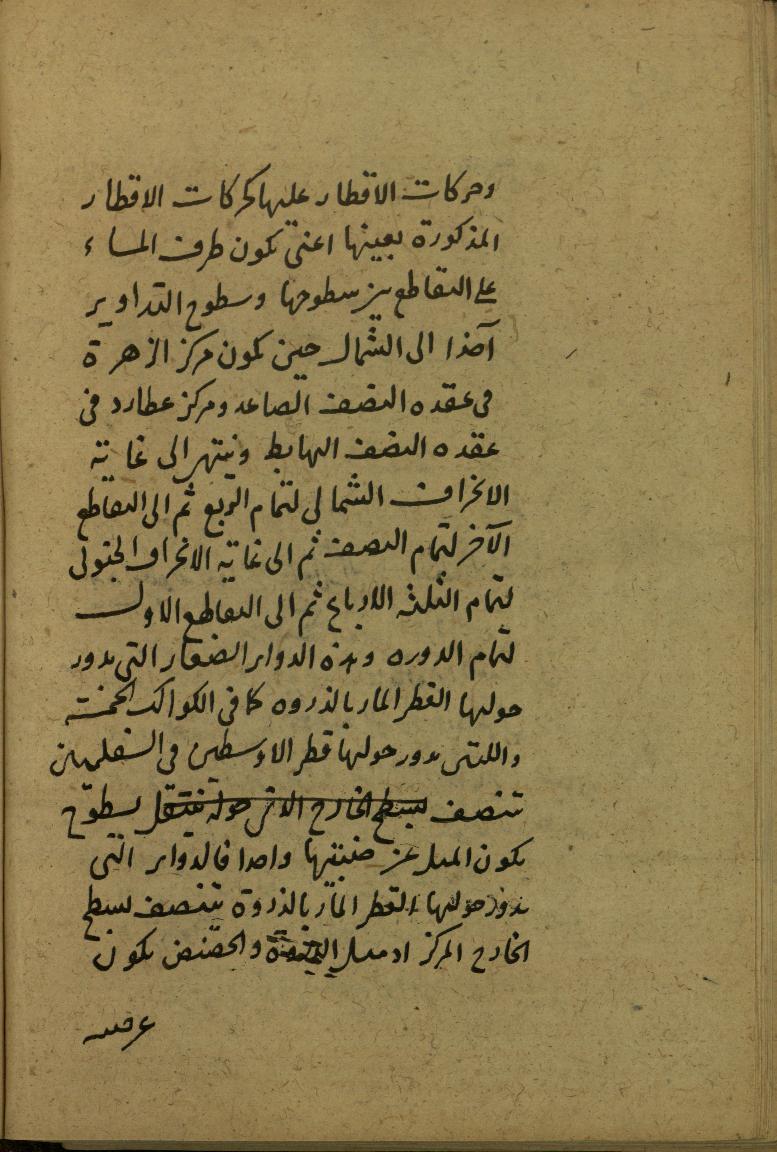 وحركات الاقطار عليها كحركات الاقطار
المذكورة بعينها اعنى تكون طرف المساء
على التقاطع بين سطوحها وسطوح التداوير
آخذا الى الشمال حين يكون مركز الزهرة
فى عقده النصف الصاعد ومركز عطارد فى
عقده النصف الهابط وينتهى الى غاية
الانحراف الشمالى لتمام الربع ثم الى التقاطع
الآخر لتمام النصف ثم الى غاية الانحراف الجنوبى
لتمام الثلثه الارباع ثم الى التقاطع الاول
لتمام الدوره وهذه الدواير الصغار التى يدور
حولها القطر المار بالذروه كما فى الكواكب الخمسه
واللتين يدور حولها قطر الاوسطين فى السفليين
تنصف بسطح الخارج بسطوح
يكون الميل عن جنبتيها واحدا فالدواير التى
يدور حولها القطر المار بالذروة تنصف بسطح
الخارج المركز اذ ميل الذروة والحضيض يكون
عن